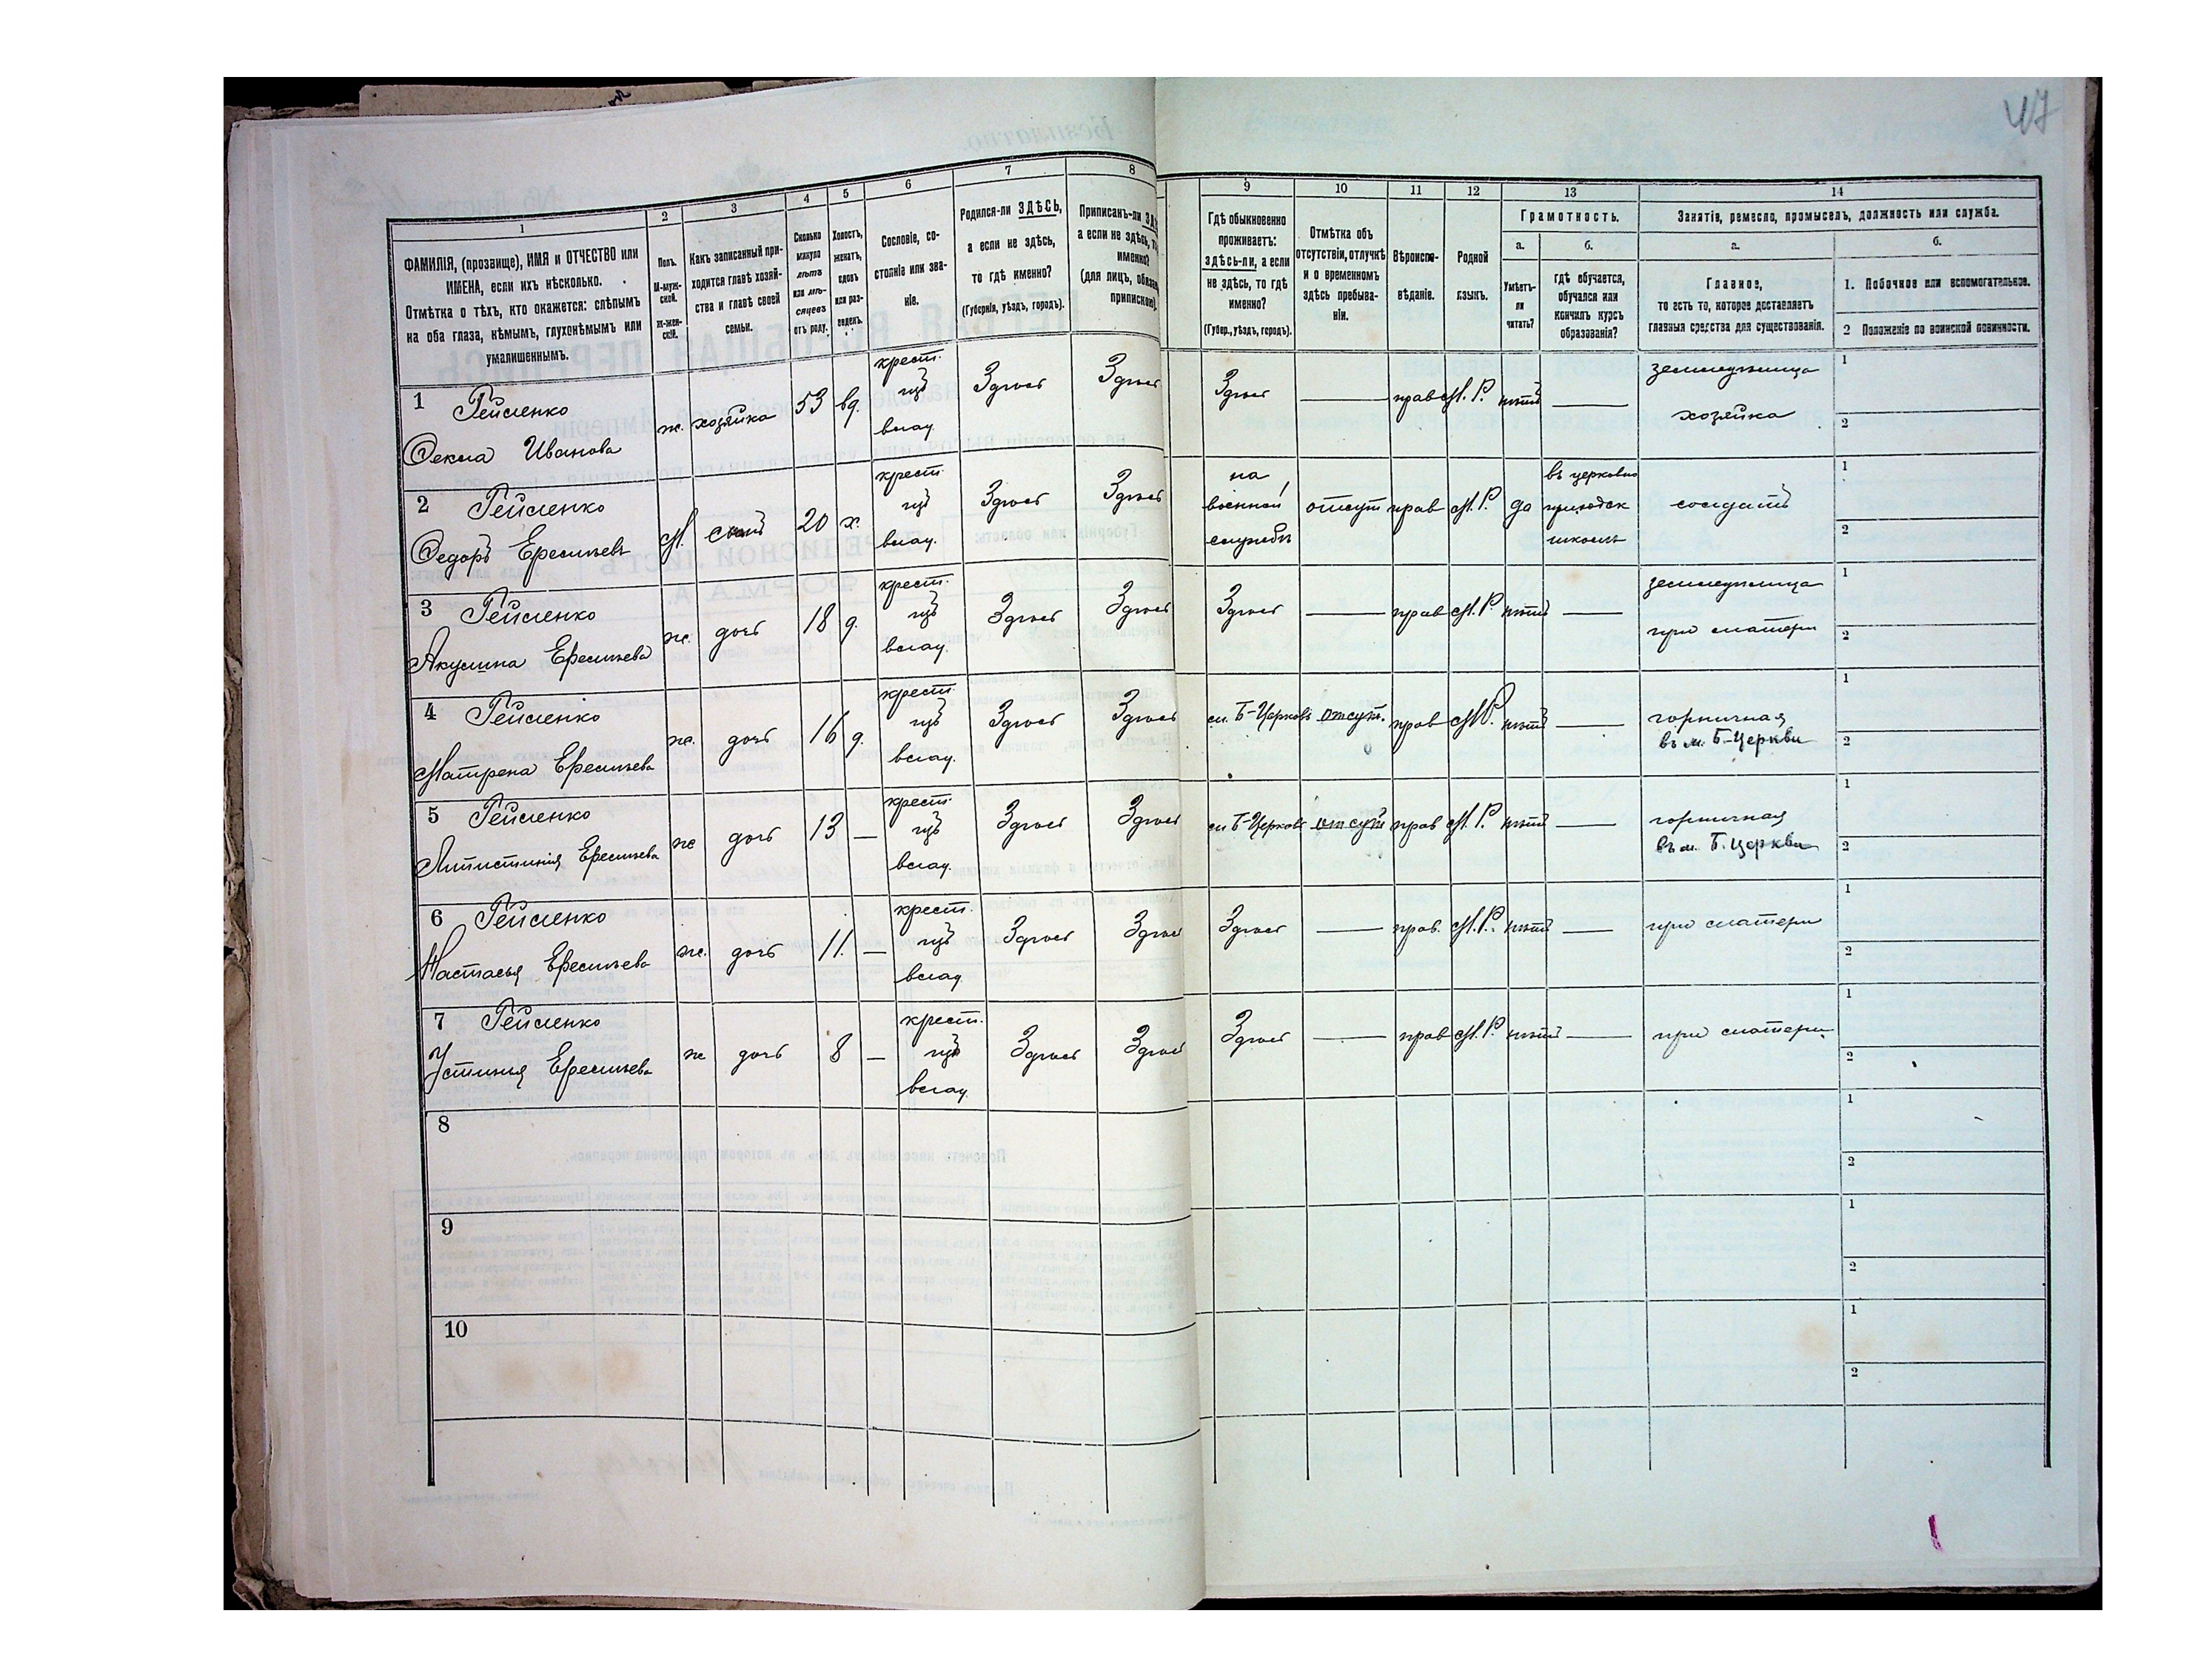 47
1 2 3 4 5 6 7 8 9 10 11 12 13 14
ФАМИЛІЯ, (прозвище), ИМЯ и ОТЧЕСТВО или
ИМЕНА, если ихъ нѣсколько.
Отмѣтка о тѣхъ, кто окажется: слѣпымъ
на оба глаза, нѣмымъ, глухонѣмымъ или
умалишеннымъ.
Полъ.
М-муж-
ской.
Ж-жен-
скій.
Какъ записанный при-
ходится главѣ хозяй-
ства и главѣ своей
семьи.
Сколько
минуло
лѣтъ
или мѣ-
сяцевъ
отъ роду.
Холостъ,
женатъ,
вдовъ
или раз-
веденъ.
Сословіе, со-
стояніе или зва-
ніе.
Родился-ли ЗДѢСЬ,
а если не здѣсь,
то гдѣ именно?
(Губернія, уѣздъ, городъ).
Приписанъ-ли
а если не здѣсь,
именно?
(для лицъ,
припискою).
Гдѣ обыкновенно
проживаетъ:
здѣсь-ли, а если
не здѣсь, то гдѣ
именно?
(Губер., уѣздъ, городъ).
Отмѣтка объ
отсутствіи, отлучкѣ
и о временномъ
здѣсь пребыва-
ніи.
Вѣроиспо-
вѣданіе.
Родной
языкъ.
Грамотность.
а.
Умѣетъ-
ли
читать?
б.
Гдѣ обучается,
обучался или
кончилъ курсъ
образованія?
Занятіе, ремесло, промыселъ, должность или служба.
а.
Главное,
то есть то, которое доставляетъ
главныя средства для существованія.
б.
1. Побочное или вспомогательное.
2 Положеніе по воинской повинности.
1 Гейсленко
Ѳекла Иванова
ж. хозяйка 53 вд. крест. изъ влад. Здѣсь Здѣсь Здѣсь — прав М. Р. нѣтъ — земледѣлица хозяйка 1 2
2
Ѳедоръ
М. сынъ 20 х. крест изъ влад. Здѣсь Здѣсь на военной службѣ отсут прав М. Р. да въ церковно приходск школѣ солдатъ 1 2
3
Акулина
ж. дочь 18 д. крест. изъ влад. Здѣсь Здѣсь Здѣсь — прав М. Р. нѣтъ — земледѣлица при матери 1 2
4
Матрена
ж. дочь 16 д. крест. изъ влад. Здѣсь Здѣсь м. Б-Церковь отсут. прав М. Р. нѣтъ — горничная въ м. Б-Церкви 1 2
5
ж дочь 13 — крест. изъ влад. Здѣсь Здѣсь м Б-Церковь отсут прав М. Р. нѣтъ — горничная въ м. Б. Церкви 1 2
6
Настасья
ж. дочь 11. — крест. изъ влад. Здѣсь Здѣсь Здѣсь — прав. М. Р. нѣтъ — при матери 1 2
7
Устинья
ж дочь 8 — крест. изъ влад. Здѣсь Здѣсь Здѣсь — прав М. Р. нѣтъ — при матери 1 2
8 1 2
9 1 2
10 1 2